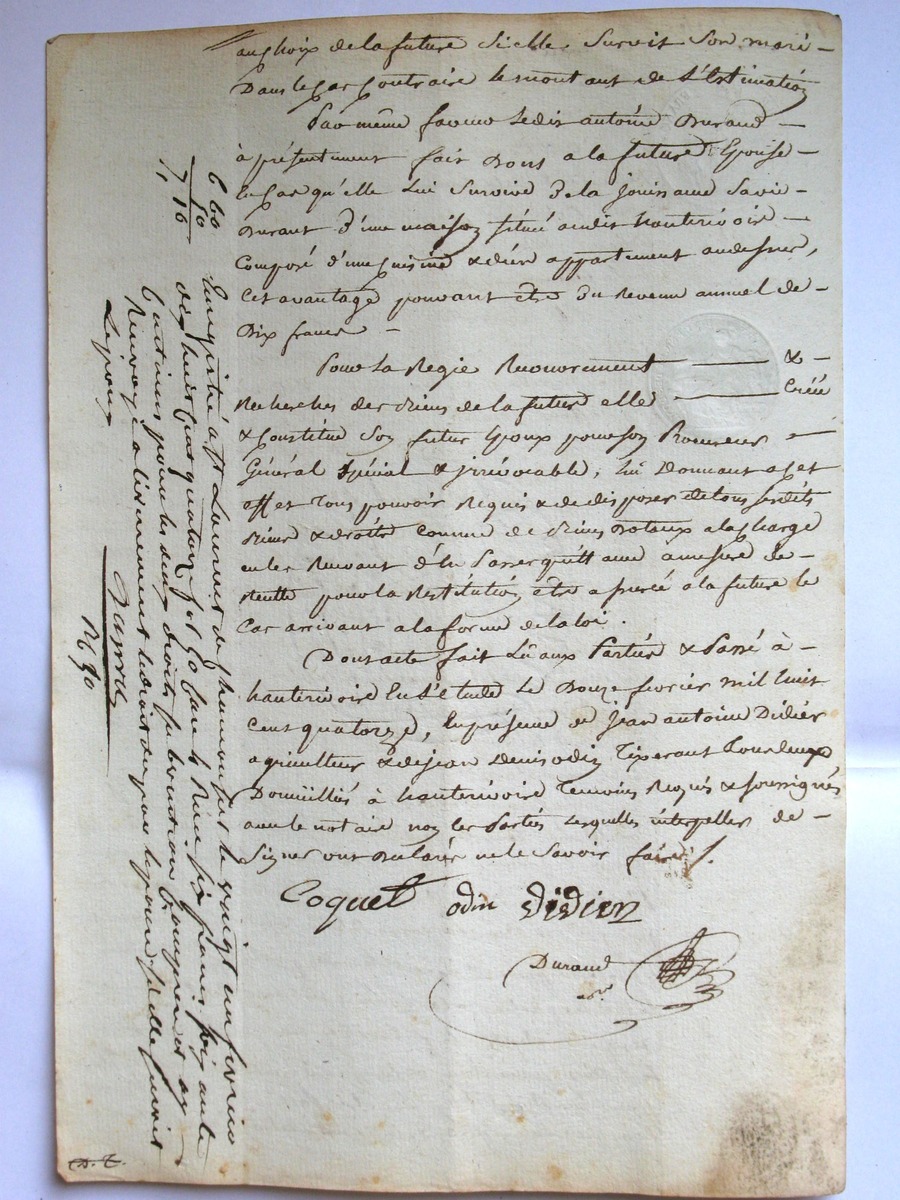 au choix de la future si elle survit son mari
Dans le cas contraire le montant de l'Estimation
Par même faveur ledit antoine Durand
à présentement fait Dons a la future Epouse
En Cas qu'elle lui survive de la jouissance sa vie
Durant d'une maison situé audit hauterivoire
Composé d'une cuisine & d'un appartement audessus,
Cet avantage pouvant être du Revenu annuel de
Dix francs
Pour la Regie Recouvrement &
Recherches des Biens de la future elle Crée
& Constitue son futur Epoux pour son Procureur
Général spécial & irrévocable, lui Donnant a cet
effet tous pouvoir Requis & de disposer de tous sesdits
Biens & droits comme de Biens dotaux a la charge
en les Recevant d'en Passer quittance
pour la Restitution être a la future le
Cas arrivant a la forme de la loi.
Dont acte fait Lû aux Parties & Passé à
hauterivoire En l'Etude Le Douze fevrier mil huit
Cent quatorze, En présence de Jean antoine Didier
agriculteur & de jean Denis odin Tixerant tous deux
Domiciliés à hauterivoire Temoins Requis & soussignés
avec le notaire non les Parties lesquelles interpellées de
Signer ont Declarés ne le Savoir faire /.
Coquet odin Didier
Durand
nore
6 60
50
7, 16
Enregistré à St Laurent de Chamousset le vingt un fevrier
dix huit cent quatorze fol 50 Reçu six francs soixante
Centimes pour les deux droits la donation Comprise et
Renvoyé a l'événement
Lejeune
R. 90
D. T.